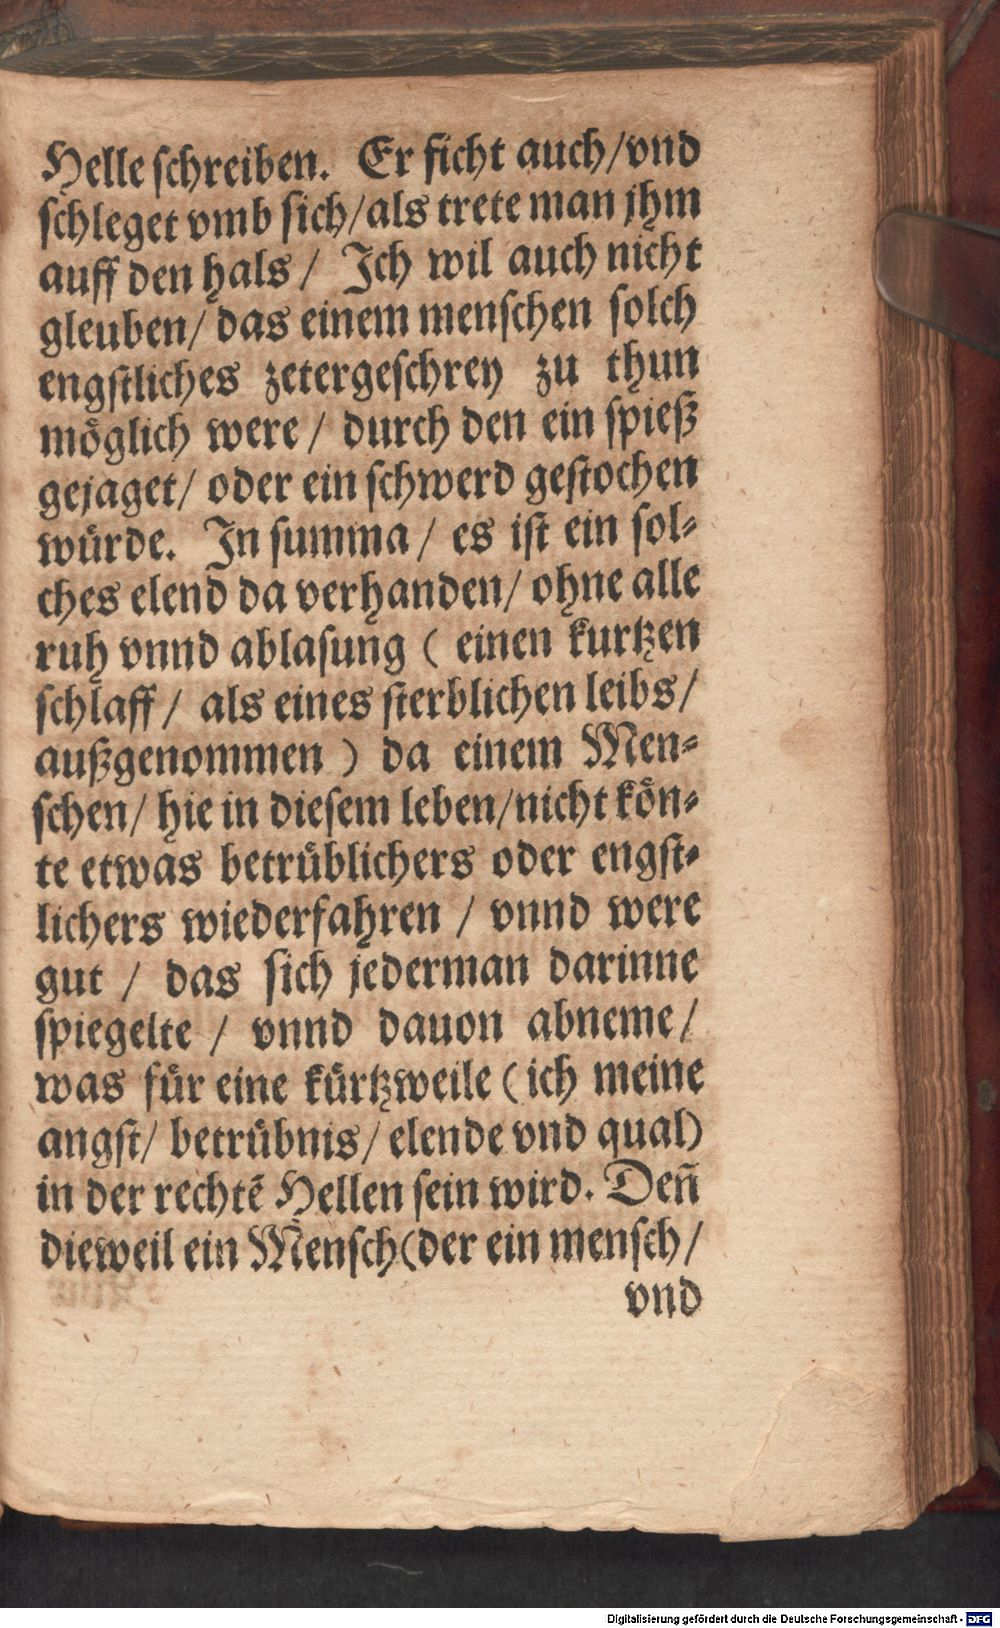 Helle schreiben. Er ficht auch/vnd
schleget vmb sich/als trete man jhm
auff den hals/ Ich wil auch nicht
gleuben/ das einem menschen solch
engstliches zetergeschrey zu thun
möglich were/ durch den ein spieß
gejaget/ oder ein schwerd gestochen
würde. In summa/ es ist ein sol⸗
ches elend da verhanden/ ohne alle
ruh vnnd ablasung ( einen kurtzen
schlaff/ als eines sterblichen leibs/
außgenommen ) da einem Men⸗
schen/ hie in diesem leben/nicht kön⸗
te etwas betrüblichers oder engst⸗
lichers wiederfahren / vnnd were
gut / das sich jederman darinne
spiegelte / vnnd dauon abneme/
was für eine kürtzweile (ich meine
angst/ betrübnis/ elende vnd qual)
in der rechtē Hellen sein wird. Deñ
dieweil ein Mensch(der ein mensch/
vnd
Digitalisierung gefördert durch die Deutsche Forschungsgemeinschaft - DFG